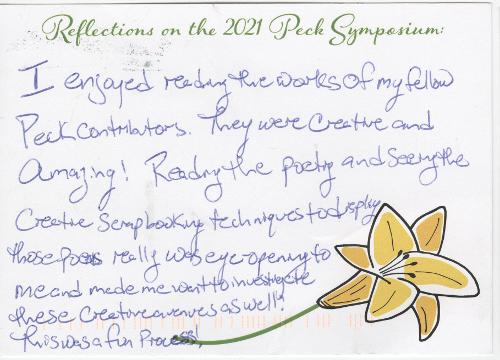 Reflections on the 2021 Peck Symposium:
I enjoyed reading the works of my fellow
Peck Contributors. They were Creative and
Amazing! Reading the poetry and seeing the
Creative Scrapbooking techniques to display
those poems really was eye opening to
me and made me want to investigate
these Creative avenues as well!
This was a fun Process.